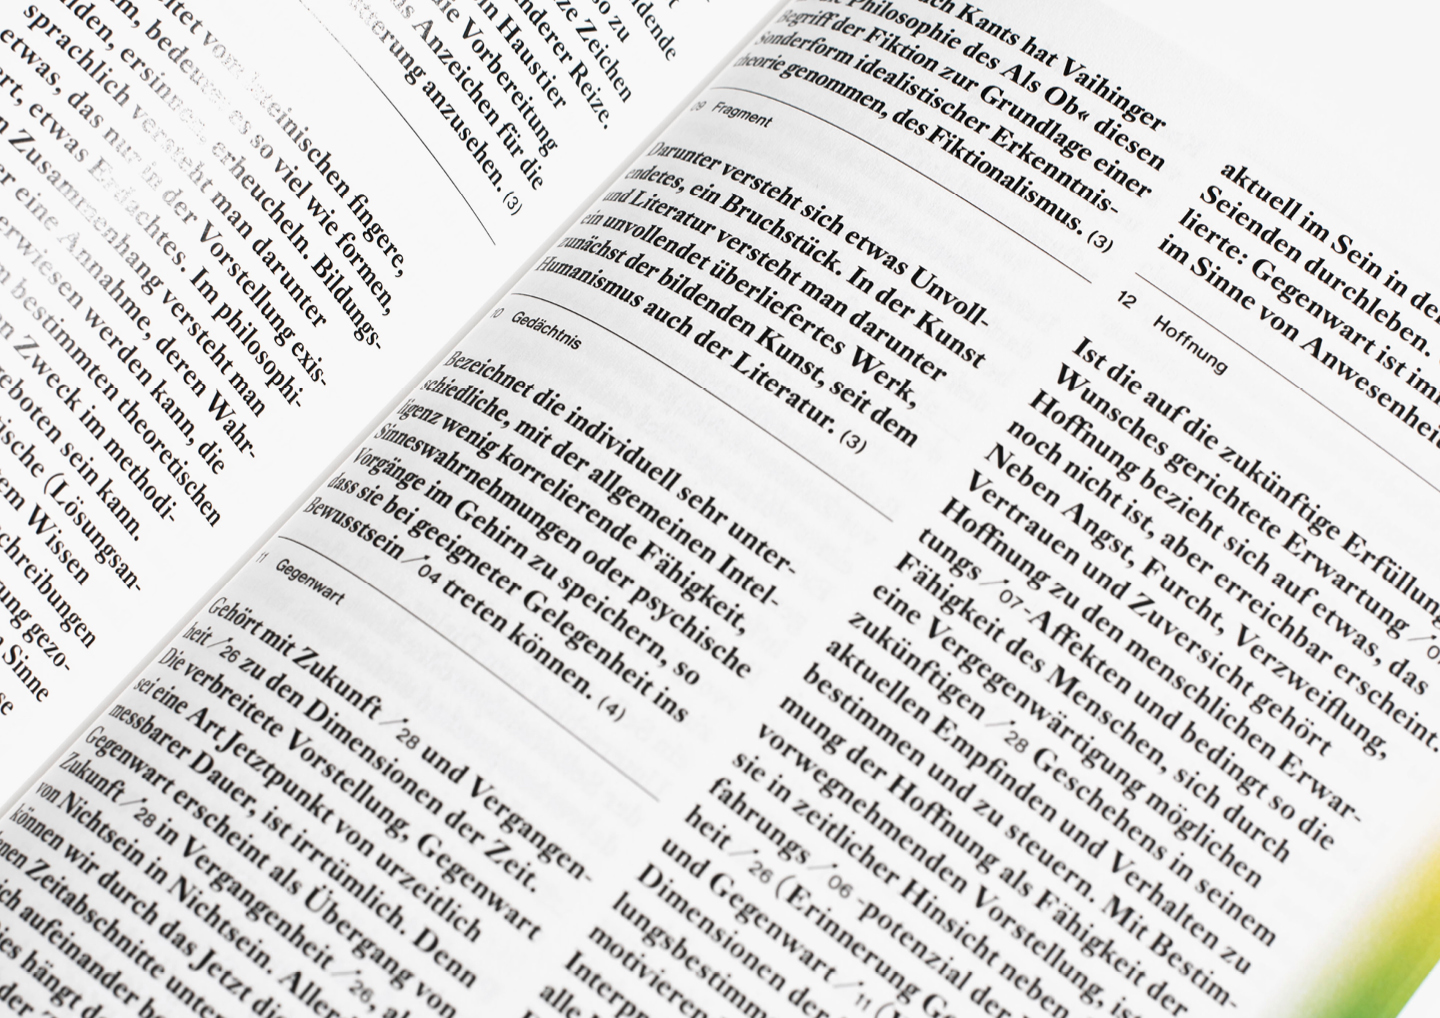 vom lateinischen fingere,
bedeutet es so viel wie formen,
ersinnen, erheucheln. Bildungs-
sprachlich versteht man darunter
etwas, das nur in der Vorstellung exis-
etwas Erdachtes. Im philosophi-
Zusammenhang versteht man
eine Annahme, deren Wahr-
erwiesen werden kann, die
bestimmten theoretischen
Zweck im methodi-
sein kann.
(Lösungsan-
Wissen
gezo-
Sinne
so zu
Zeichen
Reize.
Haustier
die Vorbereitung
Anzeichen für die
anzusehen. (3)
Kants hat Vaihinger
Philosophie des Als Ob« diesen
Begriff der Fiktion zur Grundlage einer
Sonderform idealistischer Erkenntnis-
theorie genommen, des Fiktionalismus. (3)
09 Fragment
Darunter versteht sich etwas Unvoll-
endetes, ein Bruchstück. In der Kunst
und Literatur versteht man darunter
ein unvollendet überliefertes Werk,
zunächst der bildenden Kunst, seit dem
Humanismus auch der Literatur. (3)
10 Gedächtnis
Bezeichnet die individuell sehr unter-
schiedliche, mit der allgemeinen Intel-
ligenz wenig korrelierende Fähigkeit,
Sinneswahrnehmungen oder psychische
Vorgänge im Gehirn zu speichern, so
dass sie bei geeigneter Gelegenheit ins
Bewusstsein /04 treten können. (4)
11 Gegenwart
Gehört mit Zukunft /28 und Vergangen-
heit /26 zu den Dimensionen der Zeit.
Die verbreitete Vorstellung, Gegenwart
sei eine Art Jetztpunkt von urzeitlich
messbarer Dauer, ist irrtümlich. Denn
Gegenwart erscheint als Übergang von
Zukunft /28 in Vergangenheit /26,
von Nichtsein in Nichtsein.
können wir durch das Jetzt
Zeitabschnitte
aufeinander
hängt
aktuell im Sein in
Seienden durchleben.
lierte: Gegenwart ist
im Sinne von
12 Hoffnung
Ist die auf die zukünftige Erfüllung
Wunsches gerichtete Erwartung
Hoffnung bezieht sich auf etwas, das
noch nicht ist, aber erreichbar erscheint.
Neben Angst, Furcht, Verzweiflung,
Vertrauen und Zuversicht gehört
Hoffnung zu den menschlichen Erwar-
tungs /07-Affekten und bedingt so die
Fähigkeit des Menschen, sich durch
eine Vergegenwärtigung möglichen
zukünftigen /28 Geschehens in seinem
aktuellen Empfinden und Verhalten zu
bestimmen und zu steuern. Mit Bestim-
mung der Hoffnung als Fähigkeit der
vorwegnehmenden Vorstellung, ist
sie in zeitlicher Hinsicht neben
fahrungs /06-potenzial der
heit /26 (Erinnerung
und Gegenwart /11
Dimensionen
motivieren
alle